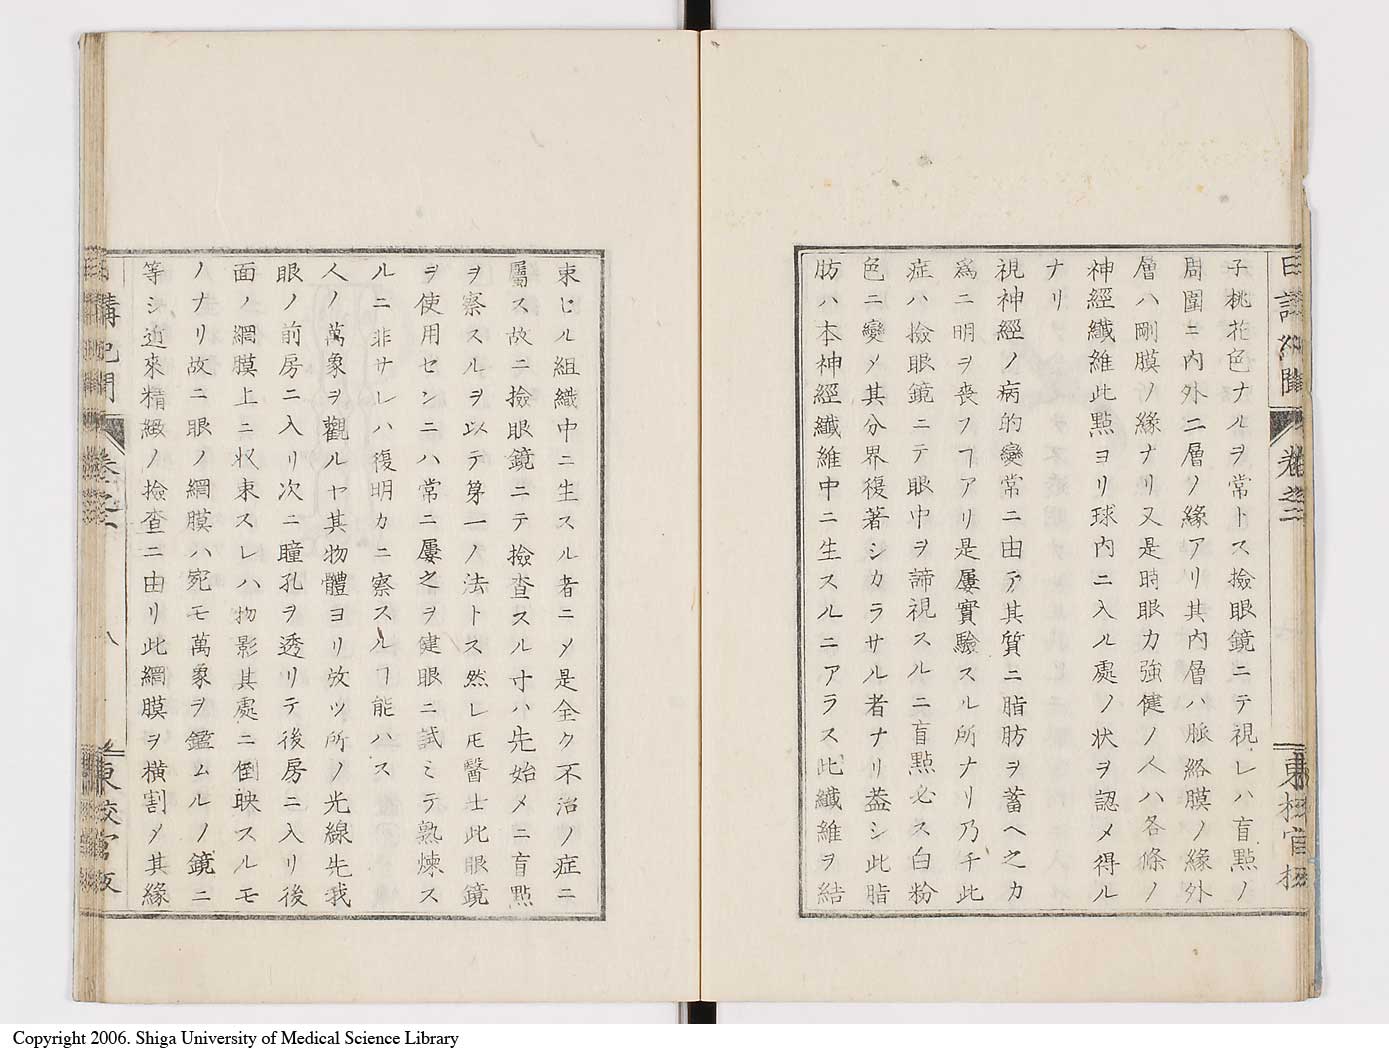 日講紀聞 卷之二 東校官板
子桃花色ナルヲ常トス撿眼鏡ニテ視レハ盲㸃ノ
周圍ニ內外二層ノ緣アリ其內層ハ脈絡膜ノ緣外
層ハ剛膜ノ緣ナリ又是時眼力強健ノ人ハ各條ノ
神經纖維此㸃ヨリ球內ニ入ル處ノ状ヲ認メ得ル
ナリ
視神經ノ病的變常ニ由テ其質ニ脂肪ヲ蓄ヘ之カ
爲ニ明ヲ喪フヿアリ是屢實驗スル所ナリ乃チ此
症ハ撿眼鏡ニテ眼中ヲ諦視スルニ盲㸃必ス白粉
色ニ變メ其分界復著シカラサル者ナリ葢シ此脂
肪ハ本神經纖維中ニ生スルニアラス此纖維ヲ結
束セル組織中ニ生スル者ニメ是全ク不治ノ症ニ
屬ス故ニ撿眼鏡ニテ撿查スル寸ハ先始メニ盲㸃
ヲ察スルヲ以テ第一ノ法トス然レ𪜈醫士此眼鏡
ヲ使用センニハ常ニ屢之ヲ健眼ニ試ミテ熟煉ス
ルニ非サレハ復明カニ察スルヿ能ハス
人ノ萬象ヲ觀ルヤ其物體ヨリ放ツ所ノ光線先我
眼ノ前房ニ入リ次ニ瞳孔ヲ透リテ後房ニ入リ後
面ノ網膜上ニ收束スレハ物影其處ニ倒映スルモ
ノナリ故ニ眼ノ網膜ハ宛モ萬象ヲ鑑ムルノ鏡ニ
等シ近來精緻ノ撿查ニ由リ此網膜ヲ橫割メ其緣
日講紀聞 卷之二 八 東校官板
Copyright 2006. Shiga University of Medical Science Library